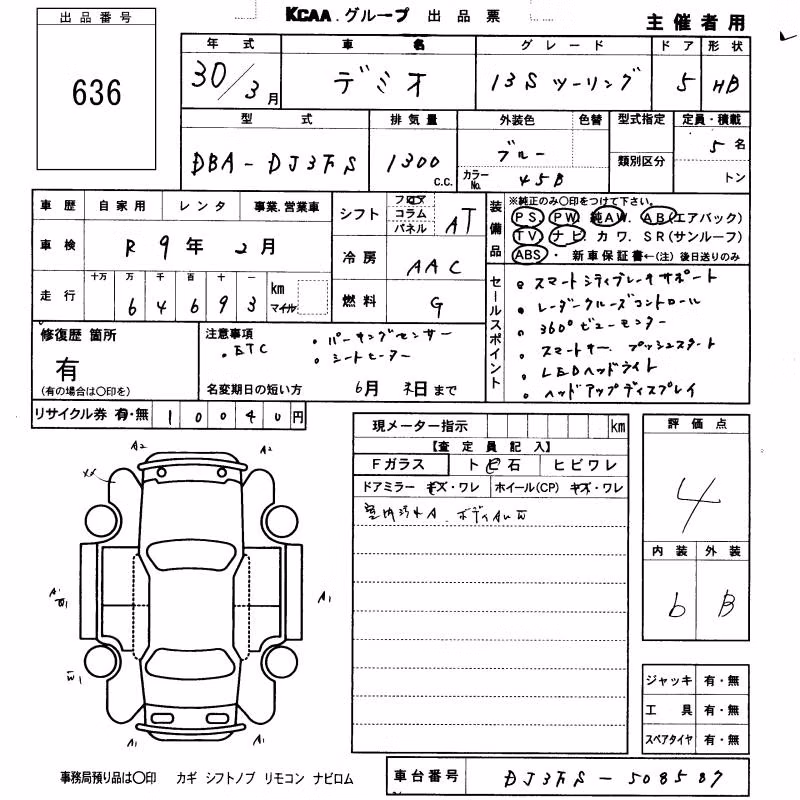 出品番号
636
KCAA グループ 出品票
主催者用
年式 車名 グレード ドア 形状
30/3月 デミオ 13S ツーリング 5 HB
型式 排気量 外装色 色替 型式指定 定員・積載
DBA-DJ3FS 1300 c.c. ブルー カラーNo. 45B 類別区分 5名 トン
車歴 自家用 レンタ 事業.営業車
車検 R9年2月
走行 十万 万 千 百 十 一 km マイル
6 4 6 9 3
シフト フロア コラム パネル AT
冷房 AAC
燃料 G
装備品
※純正のみ〇印をつけて下さい。
PS PW 純AW. AB(エアバック)
TV ナビ カワ. SR(サンルーフ)
ABS ・ 新車保証書←(注)後日送りのみ
セールスポイント
・スマートシティブレーキサポート
・レーダークルーズコントロール
・360°ビューモニター
・スマートキー プッシュスタート
・LEDヘッドライト
・ヘッドアップディスプレイ
修復歴 箇所
有
(有の場合は〇印を)
注意事項
・ETC
・パーキングセンサー
・シートヒーター
名変期日の短い方 6月末日まで
リサイクル券 有・無 10040円
現メーター指示 km
【査定員記入】
Fガラス トビ石 ヒビワレ
ドアミラー キズ・ワレ ホイール(CP) キズ・ワレ
室内汚れA. ボディAUW
評価点
4
内装 外装
b B
ジャッキ 有・無
工具 有・無
スペアタイヤ 有・無
A2 A2
XX
A1 W1
A1
W1
A1 A1
事務局預り品は〇印 カギ シフトノブ リモコン ナビロム
車台番号 DJ3FS-508587